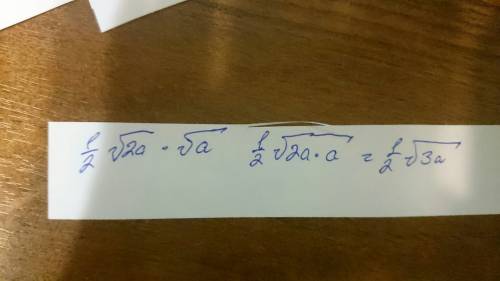 1/2 √2a · √a 1/2 √2a·a = 1/2 √3a